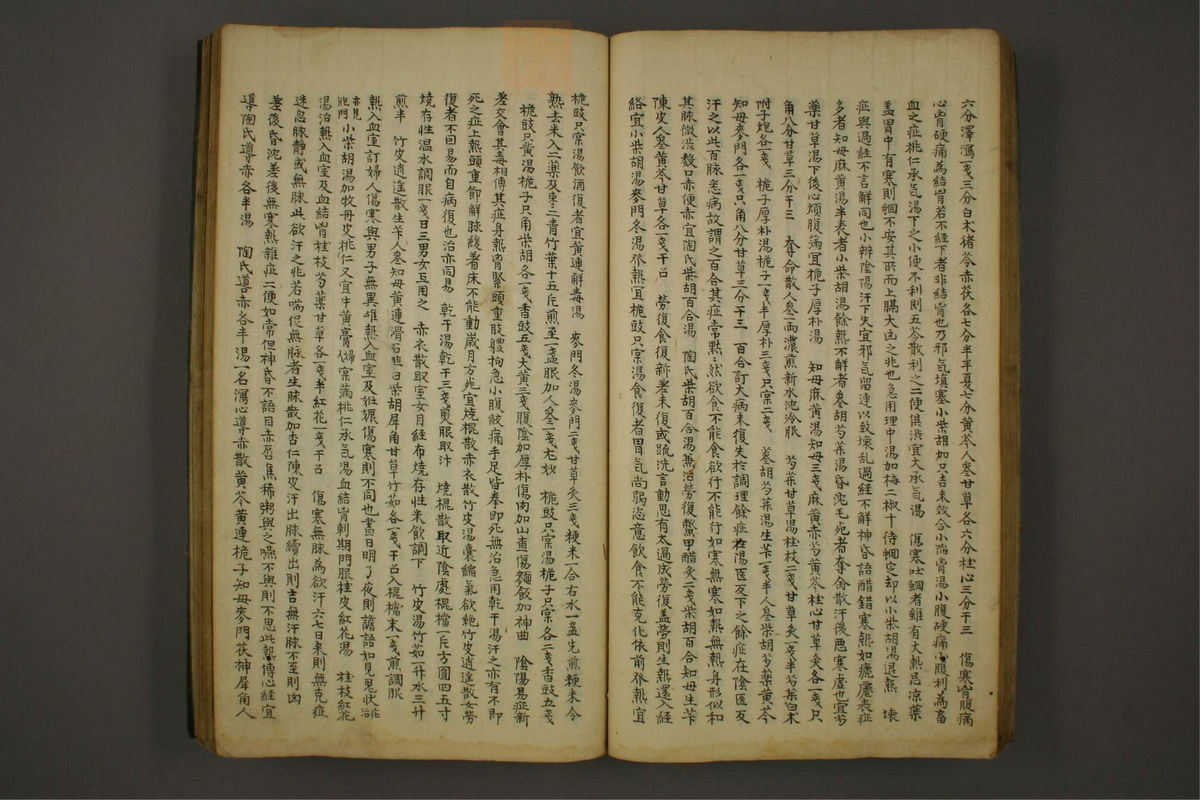 六分澤瀉一戔三分白朮猪苓赤茯各七分半半夏七分黃芩人參甘草各六分桂心三分干三 傷寒胷腹痛
心胷硬痛為結胷若不経下者非結胷也乃邪気填塞小柴胡加只吉未效合小陷胷湯小腹硬痛小便利為畜
血之症桃仁承気湯下之小便不利則五苓散利之二便俱澁宜大承気湯 傷寒吐蛔者雖有大熱忌凉藥
盖胃中有寒則蛔不安其所而上膈大凶之兆也急用理中湯加梅二椒十待蛔定却以小柴胡湯退熱 壊
症與過経不言解同也小辨陰陽汗下失宜邪気留連以致壊乱過経不解神昏語錯寒熱如瘧表症
多者知母麻黃湯半表者小柴胡湯餘熱不解者參胡芍藥湯昏沈乇死者奪命散汗後悪寒虛也宜芍
藥甘草湯下後心煩腹滿宜梔子厚朴湯 知母麻黃湯知母三戔麻黃赤芍黃芩桂心甘草灸各一戔只
角八分甘草三分干三 奪命散人參一両濃煎新水沈冷服 芍藥甘草湯桂枝二戔甘草灸一戔半芍藥白朮
附子炮各一戔 梔子厚朴湯梔子一戔半厚朴三戔只宲二戔 參胡芍藥湯生芐一戔半人參柴胡芍藥黃芩
知母麥門各一戔只角八分甘草三分干三 百合訂大病未復失於調理餘症在陽医反下之餘症在陰医反
汗之以此百脉悉病故謂之百合其症常黙黙然欲食不能食欲行不能行如寒無寒如熱無熱身形似和
其脉微数口赤便赤宜陶氏柴胡百合湯 陶氏柴胡百合湯無治勞復鱉甲醋灸二戔柴胡百合知母生芐
陳皮人參黃芩甘草各一戔干召 勞復食復新差未復或疏洗言動思有太過成勞復盖勞則生熱還入経
絡宜小柴胡湯麥門冬湯發熱宜梔豉只宲湯食復者胃気尚弱恣意飮食不能克化依前發熱宜
梔豉只宲湯飮酒復者宜黃連解毒湯 麥門冬湯麥門二戔甘草灸三戔粳米一合右水一盞先煎粳米令
熟去米入二藥及棗二青竹葉十五斥煎至一盞服加人參一戔尤妙 梔豉只宲湯梔子只宲各二戔香豉五戔
梔豉只黃湯梔子只角柴胡各一戔香豉五戔大黃三戔腹陰加厚朴傷肉加山查傷麵飯加神曲 陰陽易症新
差交會其毒相傳其症身熱胷緊頭重肢軆拘急小腹絞痛手足皆拳即死無治急用乾干湯汗之亦有不即
死之症上熱頭重節解腰緩着床不能動歲月方死宜燒裩散赤衣散竹皮湯囊縮気欲絶竹皮逍遙散女勞
復者不曰易而自病復也治亦同易 乾干湯乾干三戔煎服取汗 燒裩散取近陰處裩襠一斥方圓四五寸
燒存性温水調服一戔日三男女互用之 赤衣散取室女月経布燒存性米飮調下 竹皮湯竹茹一升水三升
煎半 竹皮逍遙散生芐人參知母黃連滑石韭白柴胡犀角甘草竹茹各一戔干召入裩襠末一戔煎調服
熱入血室訂婦人傷寒與男子無異唯熱入血室及姙娠傷寒則不同也晝日明了夜則譫語如見鬼狀症治
亦見胆門小柴胡湯加牧丹皮桃仁又宜牛黃膏歸宲萵桃仁承気湯血結胷刺期門服桂皮紅花湯 桂枝紅花
湯治熱入血室及血結胷桂枝芍藥甘草各一戔半紅花一戔干召 傷寒無脉為欲汗六七日來則無克症
迷忍脉靜或無脉此欲汗之兆若喘促無脉者生脉散加杏仁陳皮汗出脉續出則吉無汗脉不至則凶
差後昏沈差後無寒熱雜症二便如常但神昏不語目赤唇焦稀粥與之嚥不與則不思此熱傳心経宜
導陶氏導赤各半湯 陶氏導赤各半湯一名瀉心導赤散黃芩黃連梔子知母麥門茯神犀角人